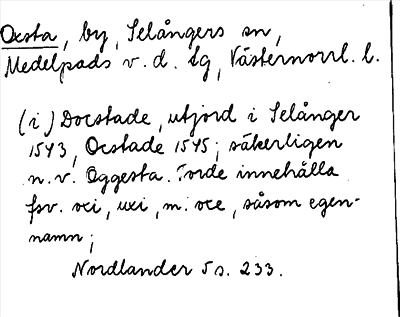 Ocsta, by, Selångers sn,
Medelpads v. d. tg, Västernorrl. l.
(i) Docstade, utjord i Selånger
1543, Ocstade 1545; säkerligen
n. v. Oggesta. Torde innehålla
fsv. oxi, uxi, m. oxe, såsom egen-
namn;
Nordlander 5 s. 233.